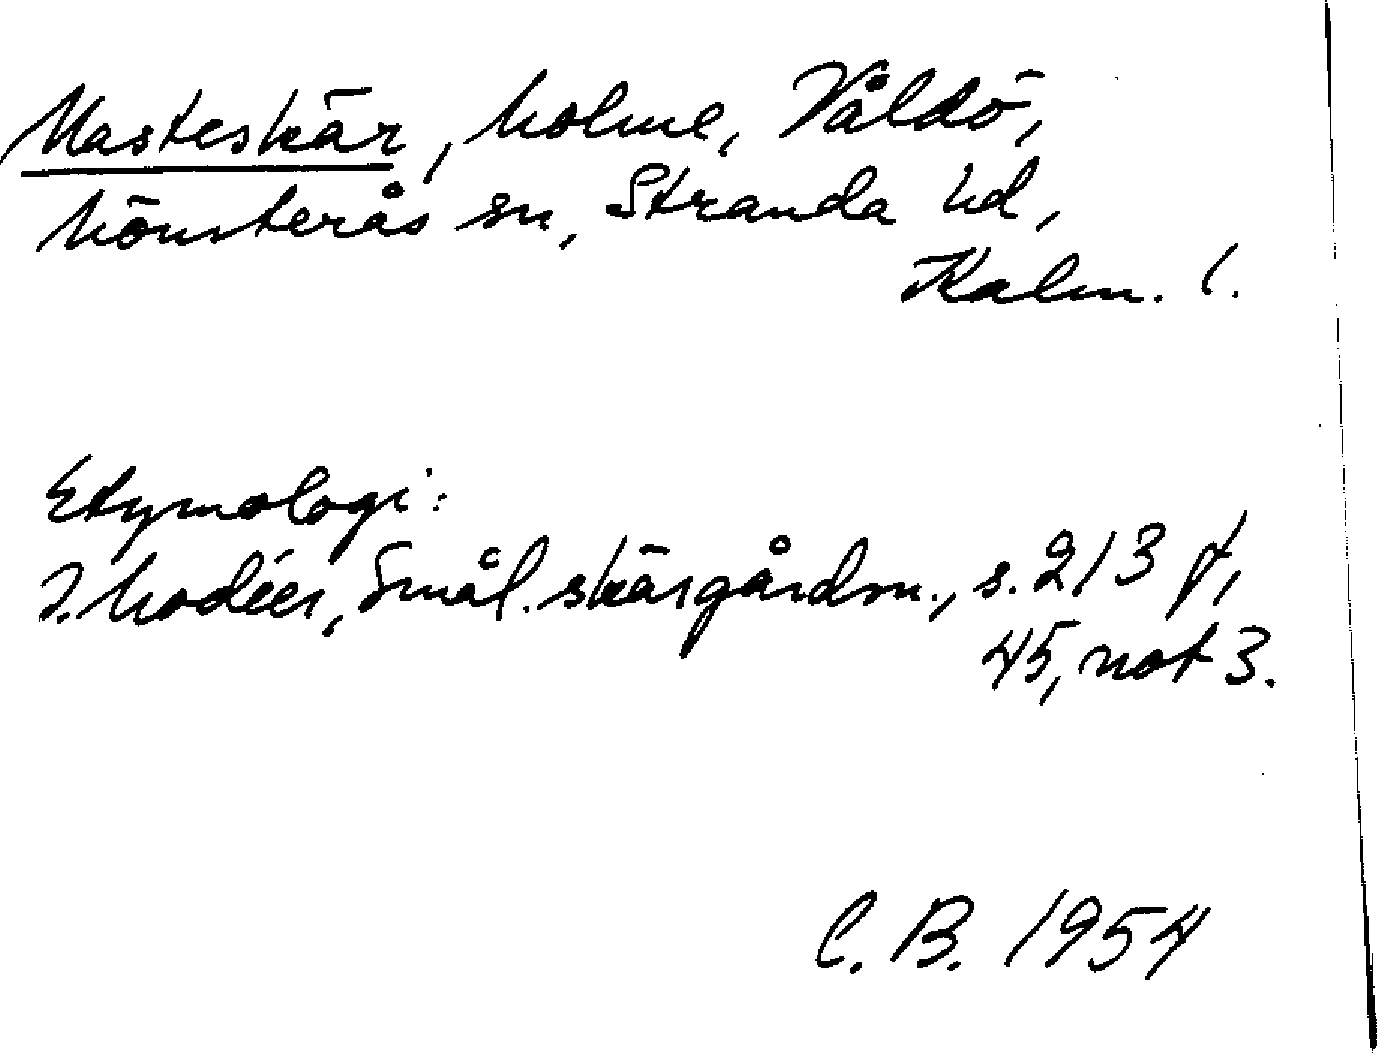 Masteskär, holme, Våldö,
Mönsterås sn, Stranda hd,
Kalm. l.
Etymologi:
I. Modéer, Smål. skärgårdsn., s. 213 f,
45, not 3.
C. B. 1954